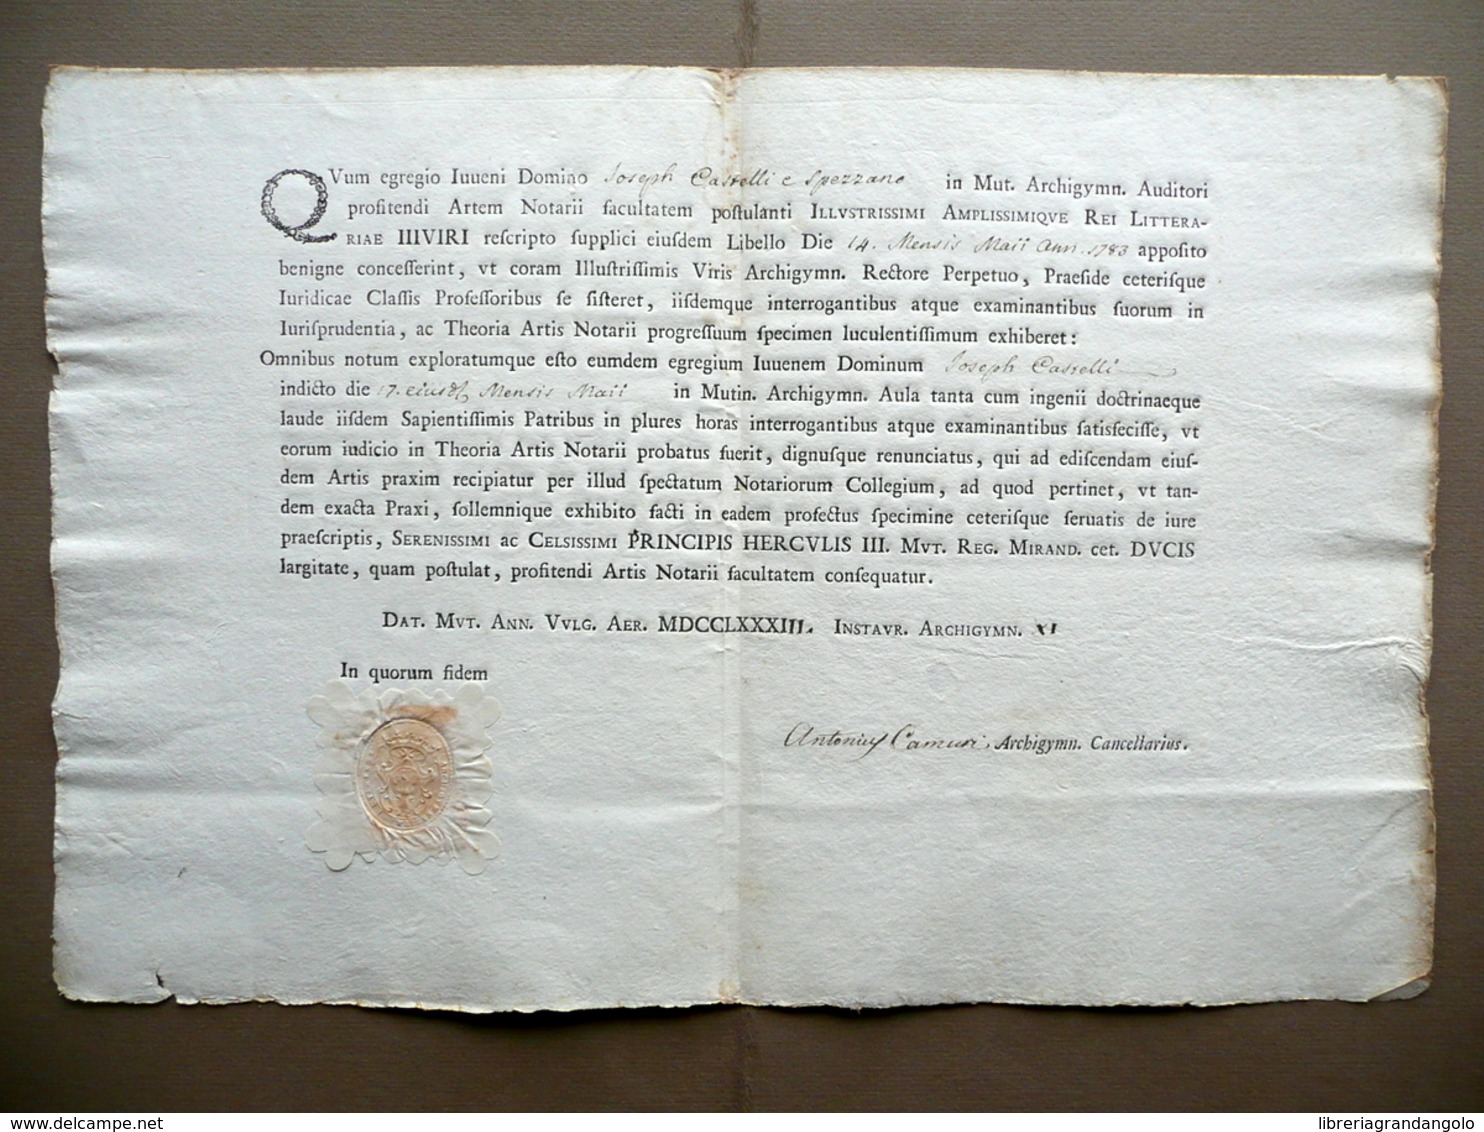 QVum egregio Iuueni Domino Joseph Castelli e Spezzano in Mut. Archigymn. Auditori
profitendi Artem Notarii facultatem poſtulanti ILLVSTRISSIMI AMPLISSIMIQVE REI LITTERA-
RIAE IIIVIRI reſcripto ſupplici eiuſdem Libello Die 14. Mensis Maii Ann. 1783 appoſito
benigne conceſſerint, vt coram Illuſtriſſimis Viris Archigymn. Rectore Perpetuo, Praeſide ceteriſque
Iuridicae Claſſis Profeſſoribus ſe ſiſteret, iiſdemque interrogantibus atque examinantibus ſuorum in
Iuriſprudentia, ac Theoria Artis Notarii progreſſuum ſpecimen luculentiſſimum exhiberet:
Omnibus notum exploratumque eſto eumdem egregium Iuuenem Dominum Joseph Castelli
indicto die 17. eiusd. Mensis Maii in Mutin. Archigymn. Aula tanta cum ingenii doctrinaeque
laude iiſdem Sapientiſſimis Patribus in plures horas interrogantibus atque examinantibus ſatisfeciſſe, vt
eorum iudicio in Theoria Artis Notarii probatus fuerit, dignuſque renunciatus, qui ad ediſcendam eiuſ-
dem Artis praxim recipiatur per illud ſpectatum Notariorum Collegium, ad quod pertinet, vt tan-
dem exacta Praxi, ſollemnique exhibito facti in eadem profectus ſpecimine ceteriſque ſeruatis de iure
praeſcriptis, SERENISSIMI AC CELSISSIMI PRINCIPIS HERCVLIS III. MVT. REG. MIRAND. cet. DVCIS
largitate, quam poſtulat, profitendi Artis Notarii facultatem conſequatur.
DAT. MVT. ANN. VVLG. AER. MDCCLXXXIII. INSTAVR. ARCHIGYMN. XI
In quorum fidem
Antonius Camuri, Archigymn. Cancellarius.
delcampe.net
libreriagrandangolo